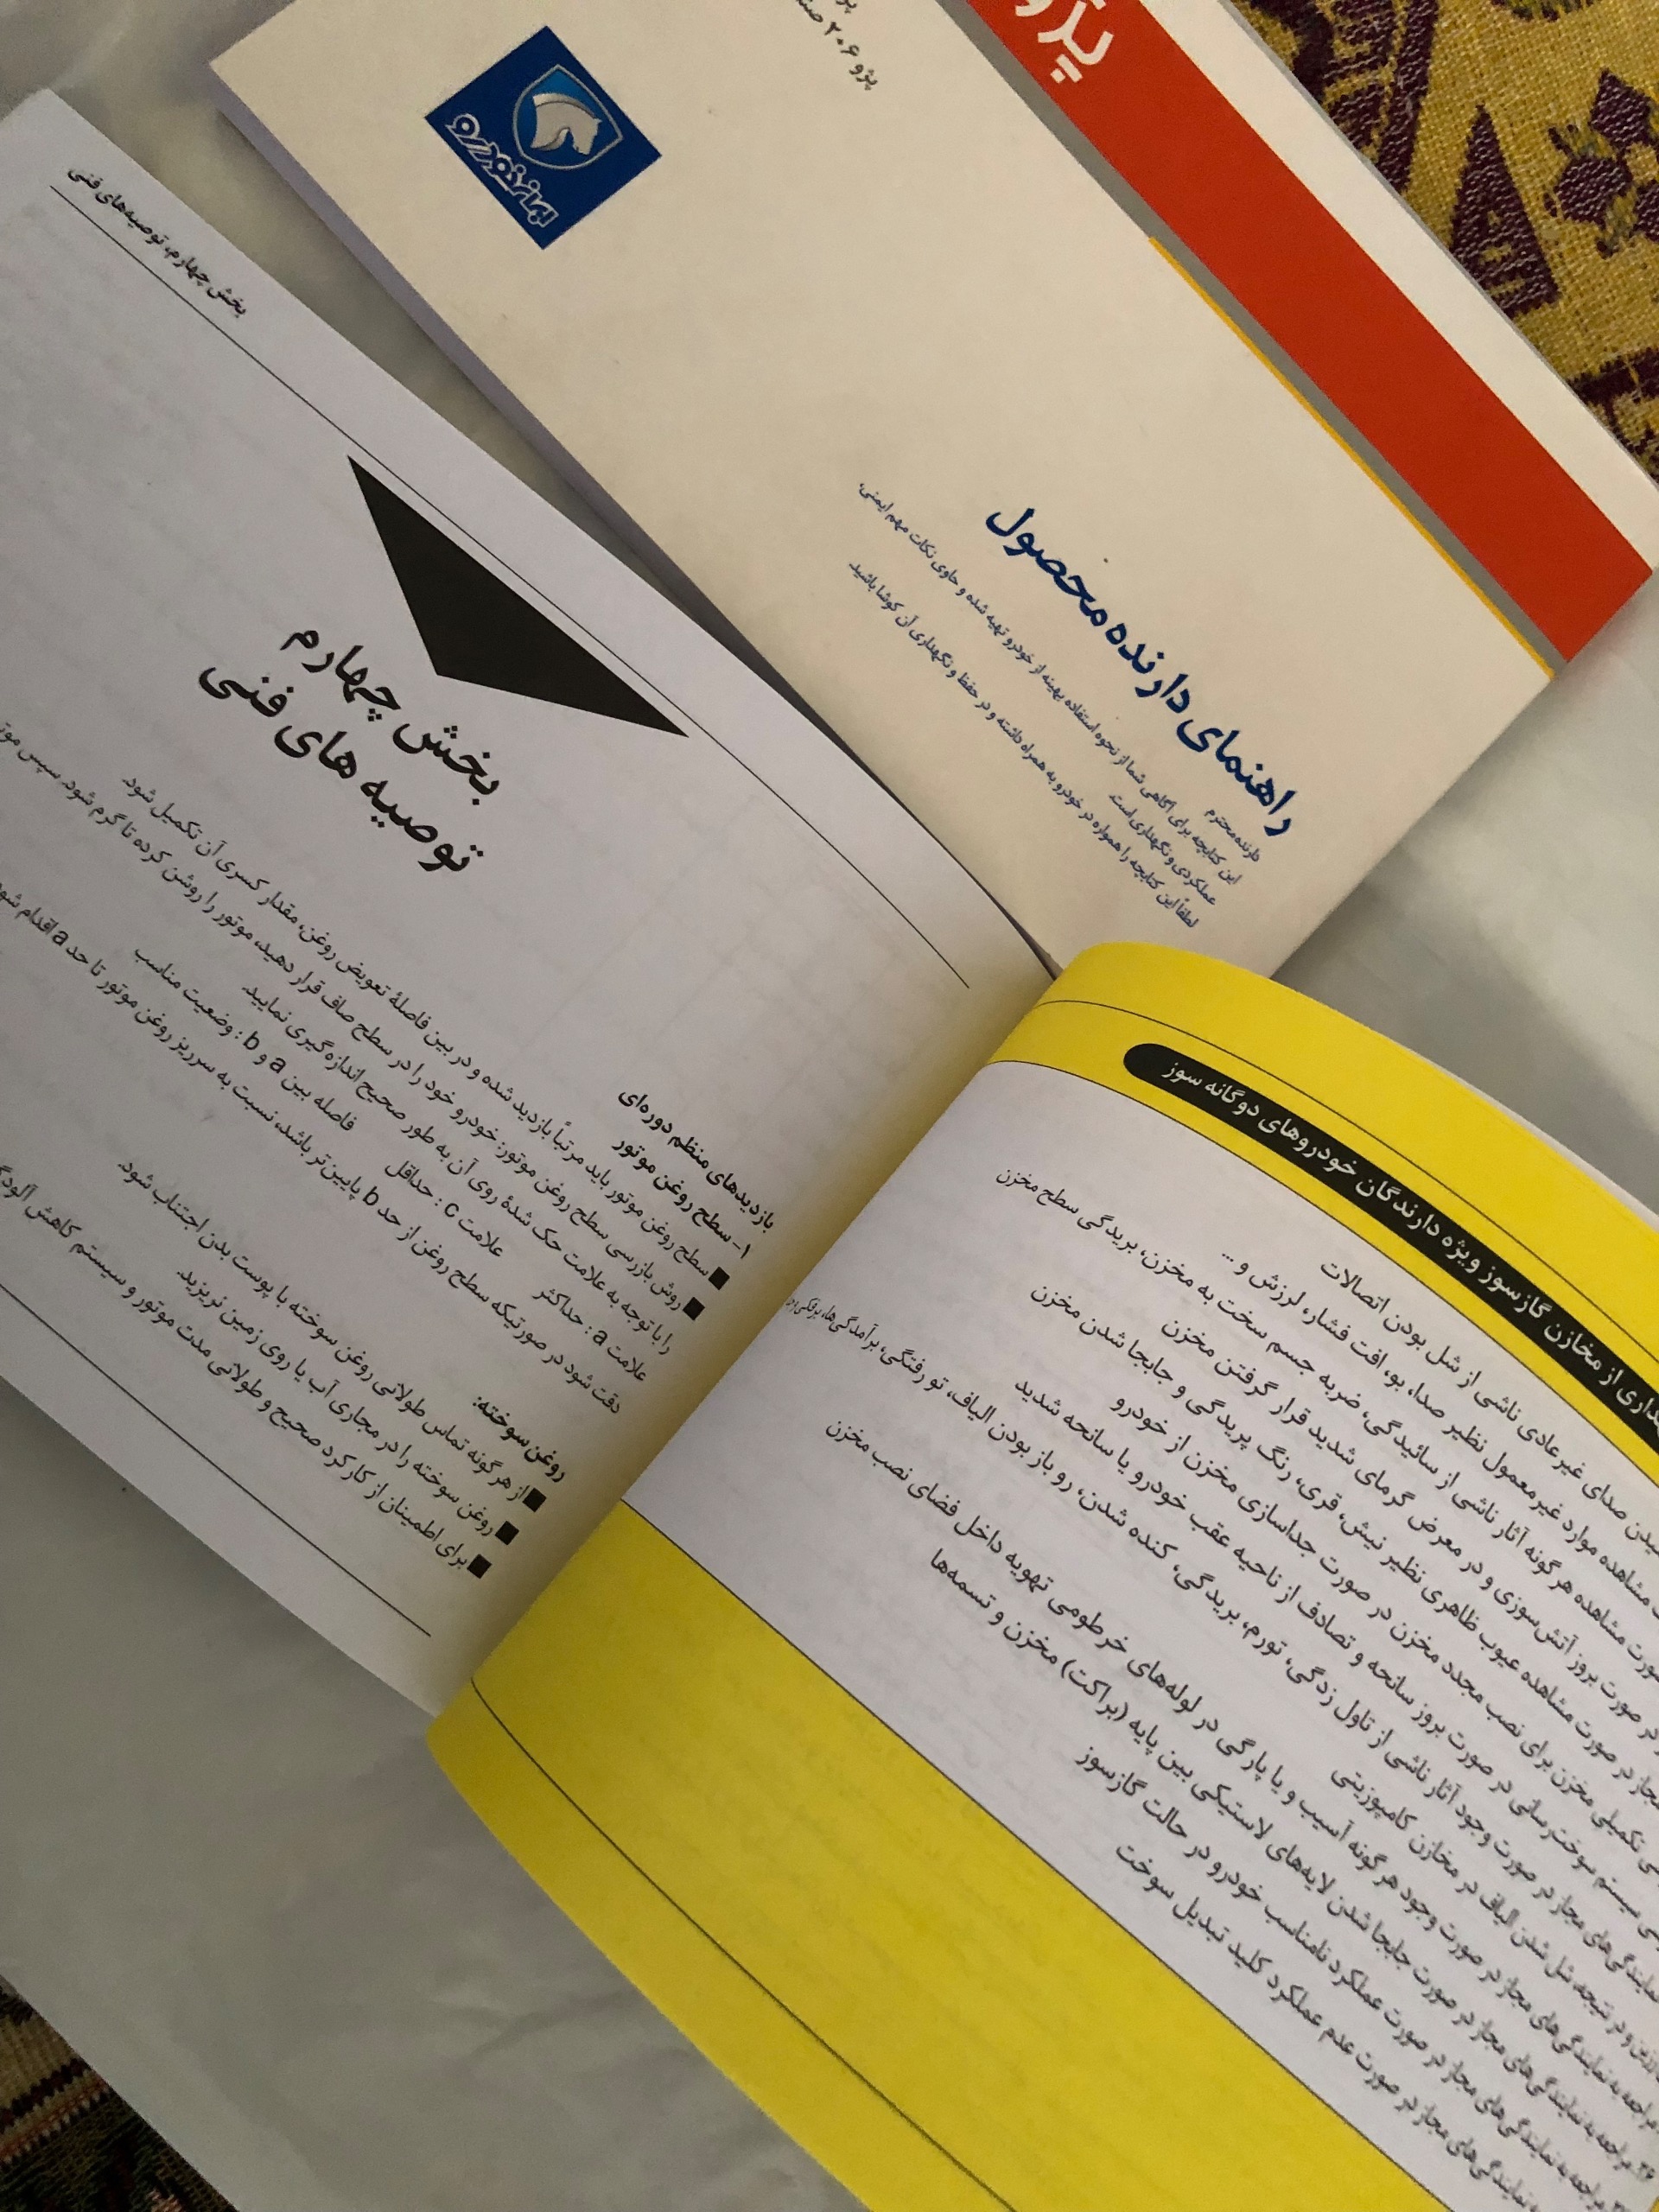 پژو
پژو ۲۰۶
ایران خودرو
راهنمای دارنده محصول
دارنده محترم
این کتابچه برای آگاهی شما از نحوه استفاده بهینه از خودرو تهیه شده و حاوی نکات مهم ایمنی،
عملکردی و نگهداری است.
لطفاً این کتابچه را همواره در خودرو به همراه داشته و در حفظ و نگهداری آن کوشا باشید.
بخش چهارم، توصیه‌های فنی
بخش چهارم
توصیه های فنی
بازدیدهای منظم دوره‌ای
۱- سطح روغن موتور
■ سطح روغن موتور باید مرتباً بازدید شده و در بین فاصلهٔ تعویض روغن، مقدار کسری آن تکمیل شود.
■ روش بازرسی سطح روغن موتور: خودرو خود را در سطح صاف قرار دهید، موتور را روشن کرده تا گرم شود. سپس
را با توجه به علامت حک شدهٔ روی آن به طور صحیح اندازه‌گیری نمایید.
علامت a : حداکثر علامت c : حداقل فاصله بین a و b : وضعیت مناسب
دقت شود در صورتیکه سطح روغن از حد b پایین‌تر باشد، نسبت به سرریز روغن موتور تا حد a اقدام شود
روغن سوخته:
■ از هر گونه تماس طولانی روغن سوخته با پوست بدن اجتناب شود.
■ روغن سوخته را در مجاری آب یا روی زمین نریزید.
■ برای اطمینان از کارکرد صحیح و طولانی مدت موتور و سیستم کاهش
از مخازن گازسوز ویژه دارندگان خودروهای دوگانه سوز
صدای غیرعادی ناشی از شل بودن اتصالات
مشاهده موارد غیر معمول نظیر صدا، بو، افت فشار، لرزش و ...
مشاهده هر گونه آثار ناشی از سائیدگی، ضربه جسم سخت به مخزن، بریدگی سطح مخزن
در صورت بروز آتش‌سوزی و در معرض گرمای شدید قرار گرفتن مخزن
در صورت مشاهده عیوب ظاهری نظیر نیش، قری، رنگ پریدگی و جابجا شدن مخزن
تکمیلی مخزن برای نصب مجدد مخزن در صورت جداسازی مخزن از خودرو
سیستم سوخت‌رسانی در صورت بروز سانحه و تصادف از ناحیه عقب خودرو یا سانحه شدید
نمایندگی‌های مجاز در صورت وجود آثار ناشی از تاول زدگی، تورم، بریدگی، کنده شدن، رو باز بودن الیاف، تو رفتگی، برآمدگی‌ها،
و در نتیجه شل شدن الیاف در مخازن کامپوزیتی
مراجعه به نمایندگی‌های مجاز در صورت وجود هر گونه آسیب و یا پارگی در لوله‌های خرطومی تهویه داخل فضای نصب مخزن
مراجعه به نمایندگی‌های مجاز در صورت جابجا شدن لایه‌های لاستیکی بین پایه (براکت) مخزن و تسمه‌ها
مراجعه به نمایندگی‌های مجاز در صورت عملکرد نامناسب خودرو در حالت گازسوز
نمایندگی‌های مجاز در صورت عدم عملکرد کلید تبدیل سوخت